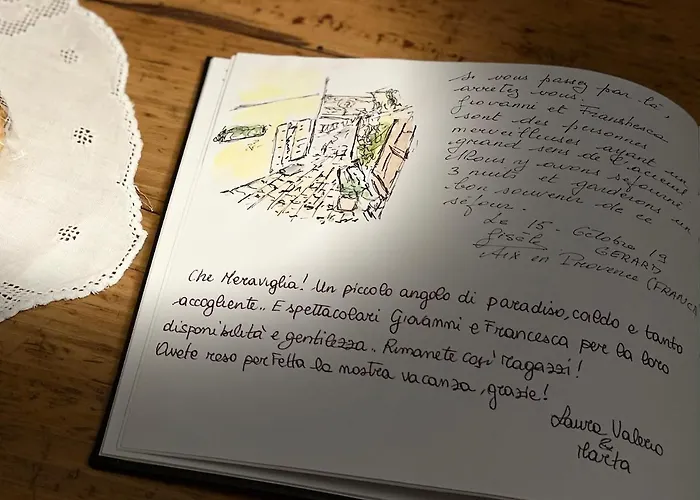 si vous passez par là,
arrêtez vous.
Giovanni et Franshesca
sont des personnes
merveilleuses ayant un
grand sens de l'accueil
Nous y avons séjourné
3 nuits et garderons un
bon souvenir de ce
séjour.
Le 15 - Octobre 19
Gisèle GERARD
Aix en Provence (FRANCE
Che Meraviglia! Un piccolo angolo di paradiso, caldo e tanto
accogliente.. E spettacolari Giovanni e Francesca per la loro
disponibilità e gentilezza.. Rimanete così ragazzi!
Avete reso perfetta la nostra vacanza, grazie!
Laura Valerio
&
Marta